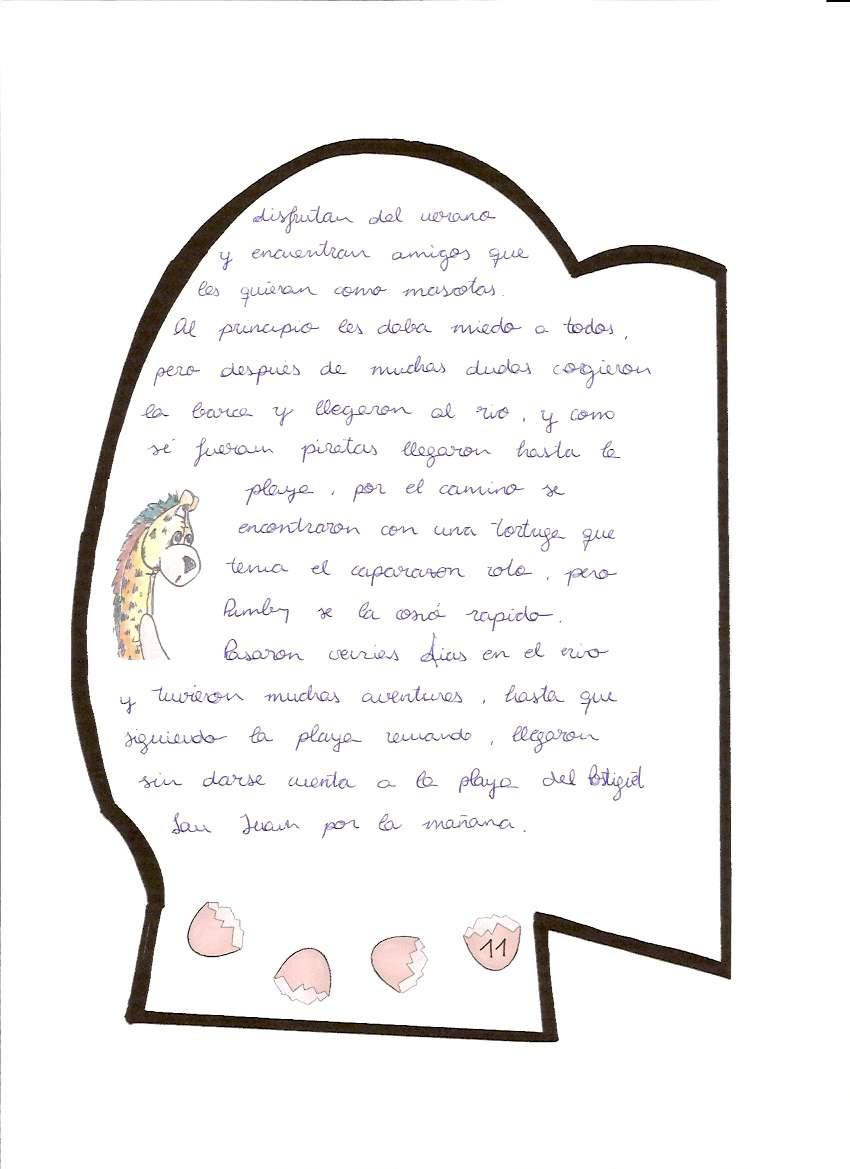 disfrutan del verano
y encuentran amigos que
les quieran como mascotas.
Al principio les daba miedo a todos,
pero después de muchas dudas cogieron
la barca y llegaron al rio, y como
sé fueran piratas llegaron hasta la
playa, por el camino se
encontraron con una tortuga que
tenia el caparazon roto, pero
se la cosió rapido.
Pasaron varios dias en el rio
y tuvieron muchas aventuras, hasta que
siguiendo la playa remando, llegaron
sin darse cuenta a la playa del Postiguet
San Juan por la mañana.
11